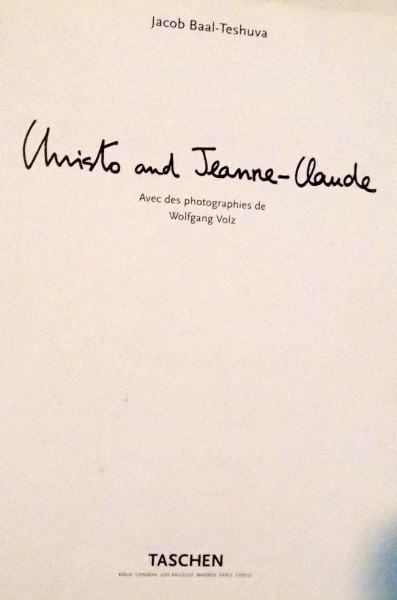 Jacob Baal-Teshuva
Christo and Jeanne-Claude
Avec des photographies de
Wolfgang Volz
TASCHEN
KÖLN LONDON LOS ANGELES MADRID PARIS TOKYO